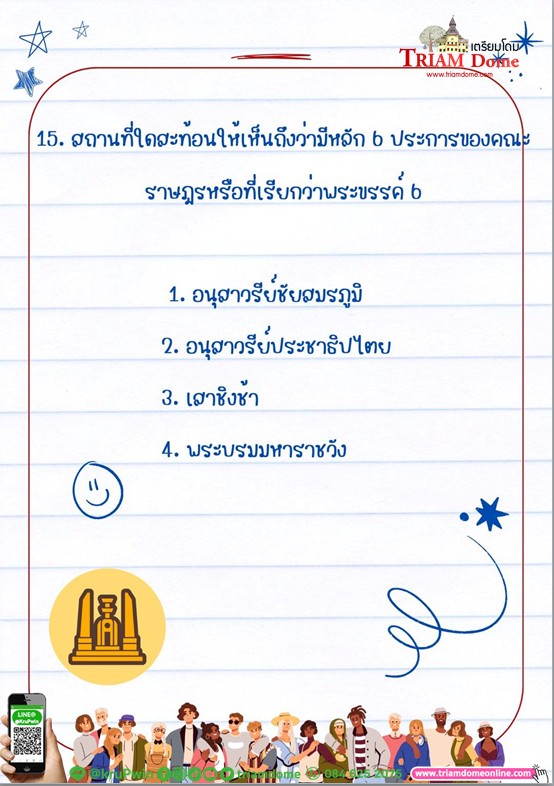 เตรียมโดม
TRIAM Dome
www.triamdome.com
15. สถานที่ใดสะท้อนให้เห็นถึงว่ามีหลัก 6 ประการของคณะ
ราษฎรหรือที่เรียกว่าพระขรรค์ 6
1. อนุสาวรีย์ชัยสมรภูมิ
2. อนุสาวรีย์ประชาธิปไตย
3. เสาชิงช้า
4. พระบรมมหาราชวัง
LINE@
@KruPwin
@kruPwin triamdome 084 625 2075 www.triamdomeonline.com